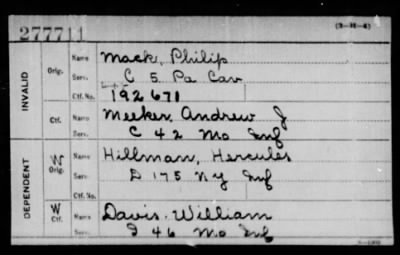 277711
(3-H-4)
INVALID
Orig.
Name Mack, Philip
Serv. C 5 Pa Cav
Ctf. No. 192671
Ctf.
Name Meeker, Andrew J
Serv. C 42 Mo Inf
DEPENDENT
W Orig.
Name Hillman, Hercules
Serv. D 175 NY Inf
Ctf. No.
W Ctf.
Name Davis, William
Serv. I 46 Mo Inf